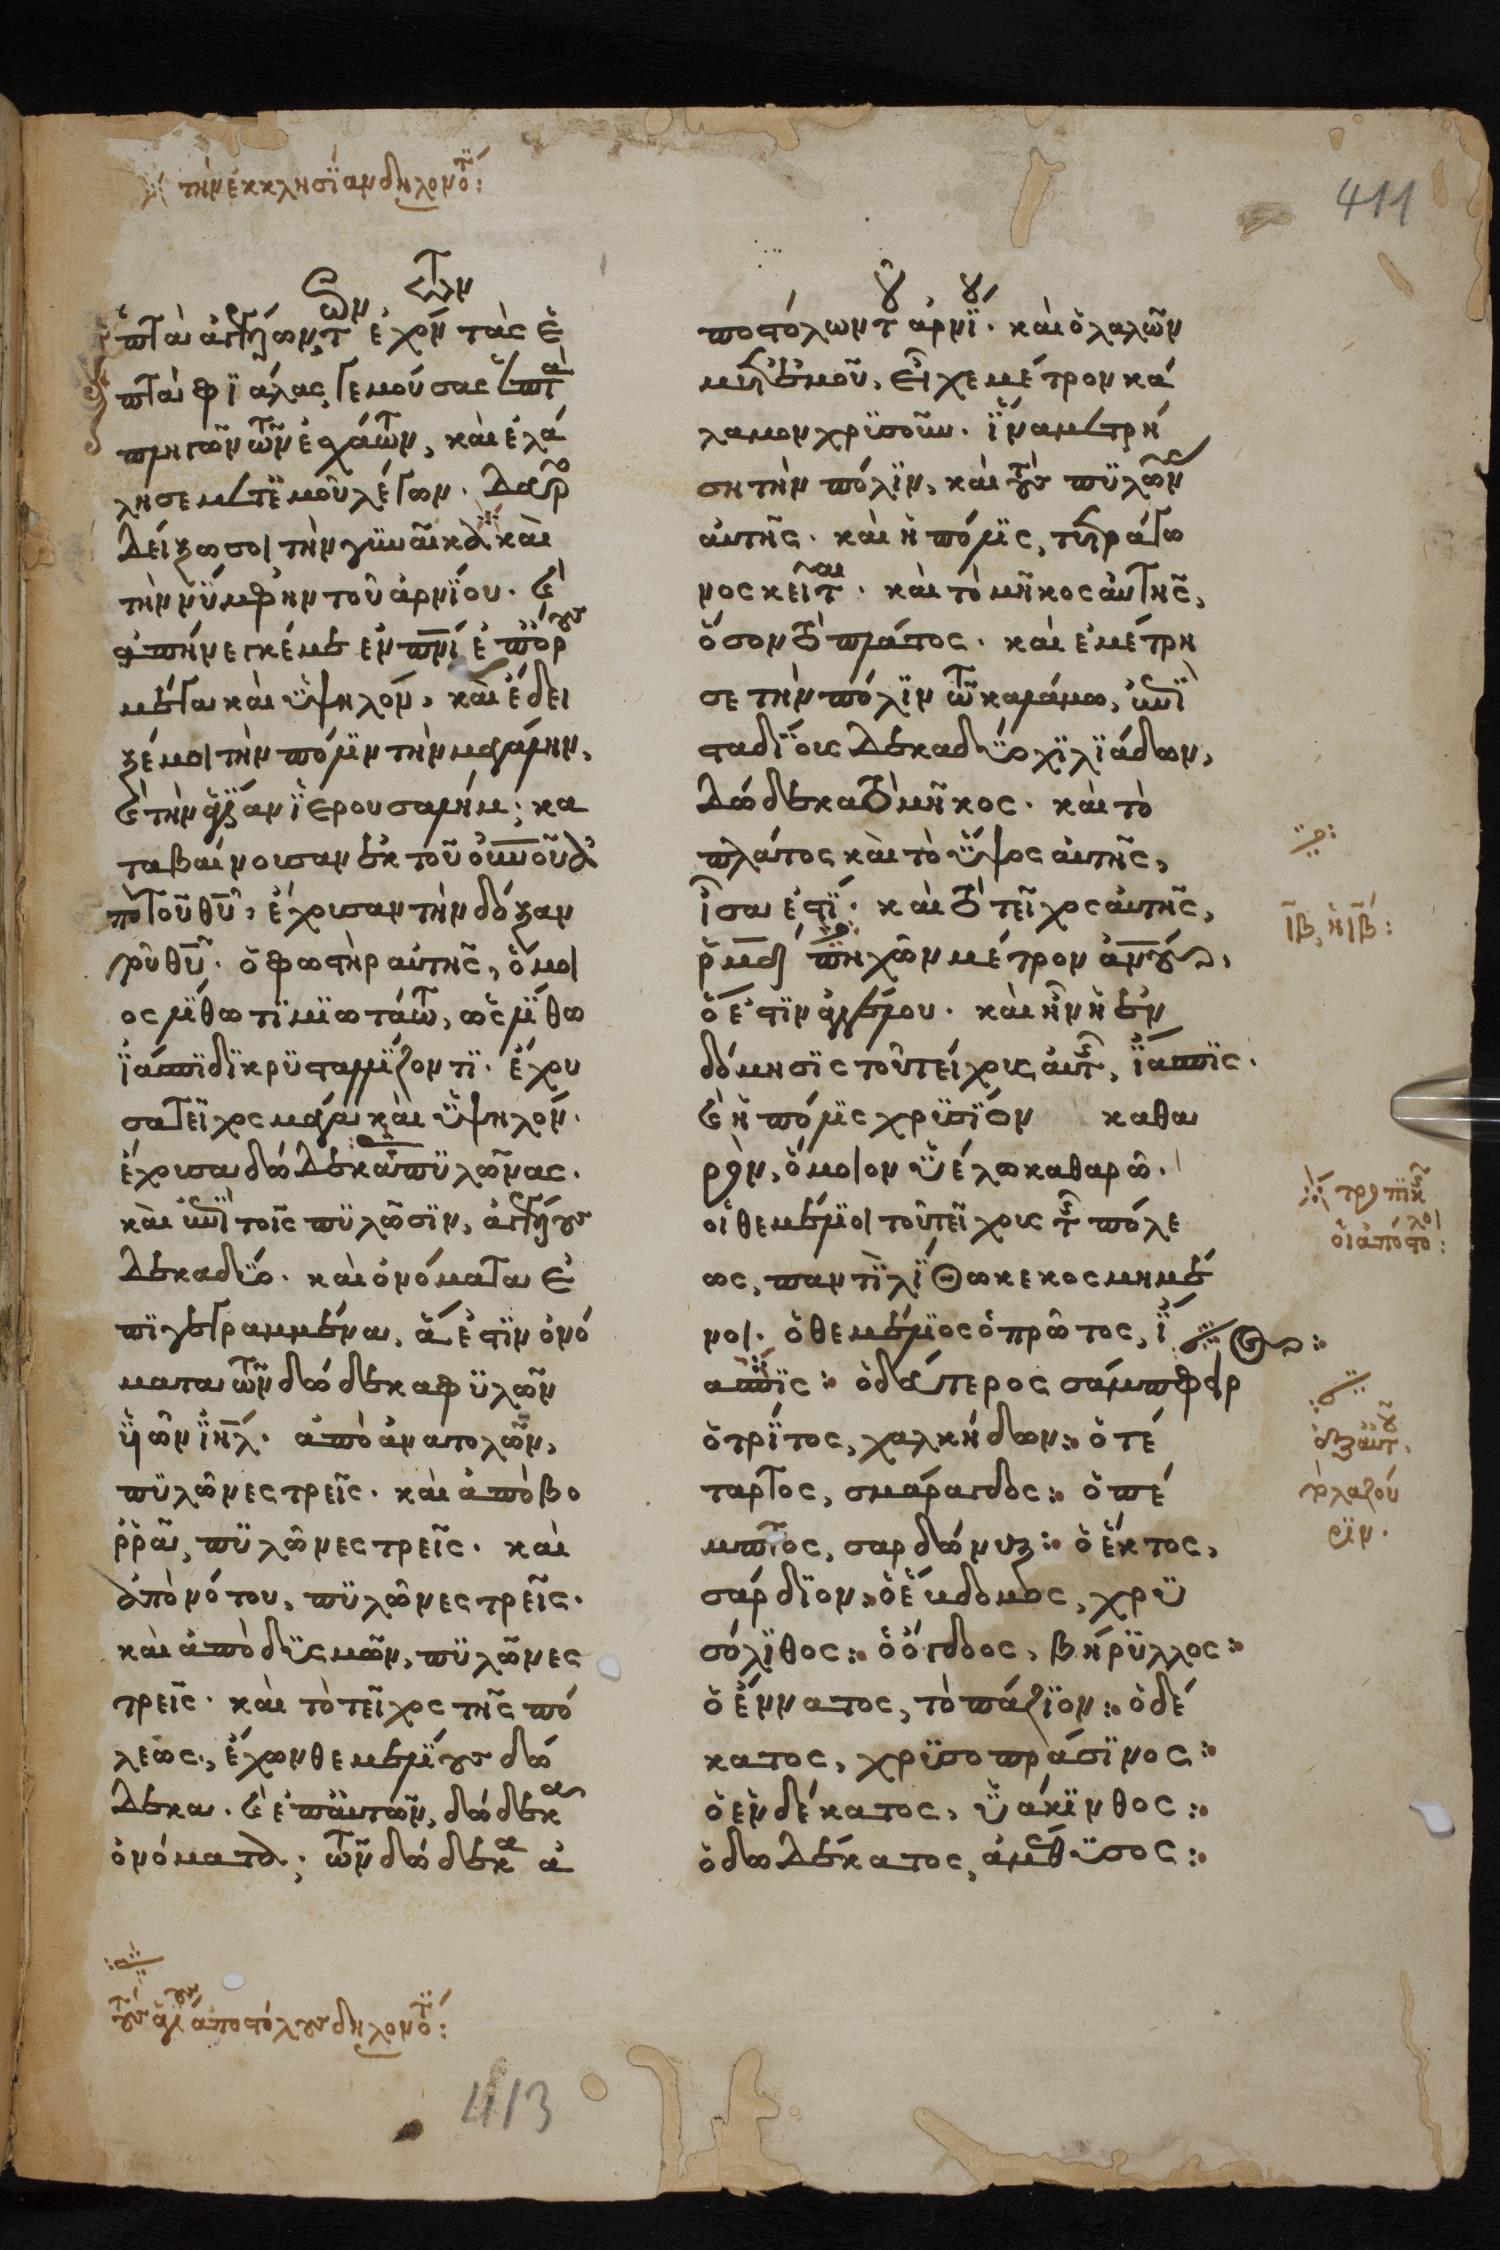 τὴν ἐκκλησΐαν δηλονό^τ:
411
ἑπτὰ ἀγγέλων, τ ἐχόν τὰς ἑ
πτὰ φϊάλας, γεμούσας ἑπτ^ὰ
πληγῶν τῶν ἐσχάτων, καὶ ἐλά
λησε μετ' ἐμοῦ λέγων. δεῦρο
δείξω σοι τὴν γϋναῖκα καὶ
τὴν νΰμφην τοῦ ἀρνΐου. καὶ
ἀπήνεγκέ με ἐν πνι ἐπ' ὄρους
μέγα καὶ ὑψηλόν, καὶ ἔδει
ξέ μοι τὴν πόλιν τὴν μεγάλην,
καὶ τὴν ἁγΐαν ἱερουσαλήμ, κα
ταβαίνουσαν ἐκ τοῦ οὐνοῦ ἀ
πὸ τοῦ θυ, ἔχουσαν τὴν δόξαν
τοῦ θυ. ὁ φωστὴρ αὐτῆς, ὅμοι
ος λΐθω τιμϊωτάτω, ὡς λΐθω
ϊάσπϊδϊ κρϋσταλλΐζοντϊ. ἔχου
σα τεῖχος μέγα καὶ ὑψηλόν.
ἔχουσα δώδεκα πϋλῶνας.
καὶ ἐπὶ τοῖς πϋλῶσϊν, ἀγγέλους
δεκαδύο. καὶ ὀνόματα ἐ
πϊγεγραμμένα, ἅ ἐστϊν ὀνό
ματα τῶν δώδεκα φϋλῶν
ϋἱῶν ιηλ. ἀπὸ ἀνατολῶν,
πϋλῶνες τρεῖς. καὶ ἀπὸ βο
ρρᾶ, πϋλῶνες τρεῖς. καὶ
ἀπὸ νότου, πϋλῶνες τρεῖς.
καὶ ἀπὸ δϋσμῶν, πϋλῶνες
τρεῖς. καὶ τὸ τεῖχος τῆς πό
λεως, ἔχων θεμελΐους δώ
δεκα. καὶ ἐπ' αὐτῶν, δώδεκ^α
ὀνόματα, τῶν δώδεκ^α ἀ
ποστόλων τ ἀρνΐ. καὶ ὁ λαλῶν
μετ' ἐμοῦ, εἶχε μέτρον κά
λαμον χρϋσοῦν. ἵνα μετρή
ση τὴν πόλϊν, καὶ τοὺς πϋλῶν
αὐτῆς. καὶ ἡ πόλϊς, τετράγω
νος κεῖτ^αι. καὶ τὸ μῆκος αὐτῆς,
ὅσον τὸ πλάτος. καὶ ἐμέτρη
σε τὴν πόλϊν τῶ καλάμω, ἐπὶ
σταδΐους δεκαδύο χϊλϊάδων,
δώδεκα τὸ μῆκος. καὶ τὸ
πλάτος καὶ τὸ ὕψος αὐτῆς,
ἶσα ἐστΐ. καὶ τὸ τεῖχος αὐτῆς,
ρμδ πηχῶν μέτρον ἀνου,
ὅ ἐστϊν ἀγγέλου. καὶ ἦν ἡ ἐν
δόμησϊς τοῦ τείχους αὐτ, ϊάσπϊς.
καὶ ἡ πόλϊς χρϋσΐον καθα
ρὸν, ὅμοιον ὑέλω καθαρῶ.
οἱ θεμέλϊοι τοῦ τείχους τ πόλε
ως, παντὶ λΐθω κεκοσμημέ
νοι. ὁ θεμέλϊος ὁ πρῶτος, ἴ
ασπϊς: ὁ δεύτερος σάμπφειρ
ὁ τρΐτος, χαλκήδων: ὁ τέ
ταρτος, σμάραγδος: ὁ πέ
μπτος, σαρδώνυξ: ὁ ἕκτος,
σάρδϊον: ὁ ἕβδομος, χρϋ
σόλϊθος: ὁ ὄγδοος, βηρϋλλος:
ὁ ἔννατος, τὸ πάζϊον: ὁ δέ
κατος, χρϋσοπράσϊνος:
ὁ ἑνδέκατος, ὑάκϊνθος:
ὁ δωδέκατος, ἀμεθϋσος:
ιβ, ἡ ιβ:
οἱ ἀπόστο^λοι:
τοὺς ἁγί^ους ἀποστόλους δηλονό^τ:
413